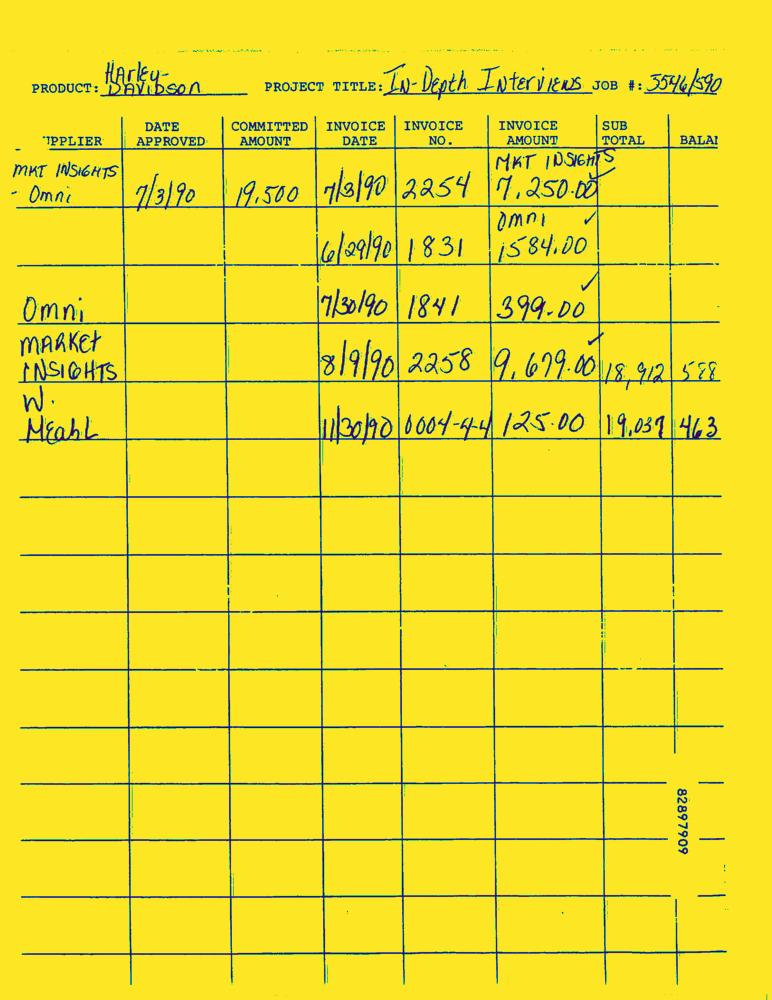 PRODUCT: Harley-Davidson PROJECT TITLE: In-Depth Interviews JOB #: 3546/590
UPPLIER DATE APPROVED COMMITTED AMOUNT INVOICE DATE INVOICE NO. INVOICE AMOUNT SUB TOTAL BALAN
MKT INSIGHTS MKT INSIGHTS
- Omni 7/3/90 19,500 7/3/90 2254 7,250.00 ✓
Omni ✓
6/29/90 1831 1584.00
Omni 7/30/90 1841 399.00 ✓
MARKET
INSIGHTS 8/9/90 2258 9,679.00 ✓ 18,912 588
W.
MEahL 11/30/90 0004-4-4 125.00 19,037 463
82897909